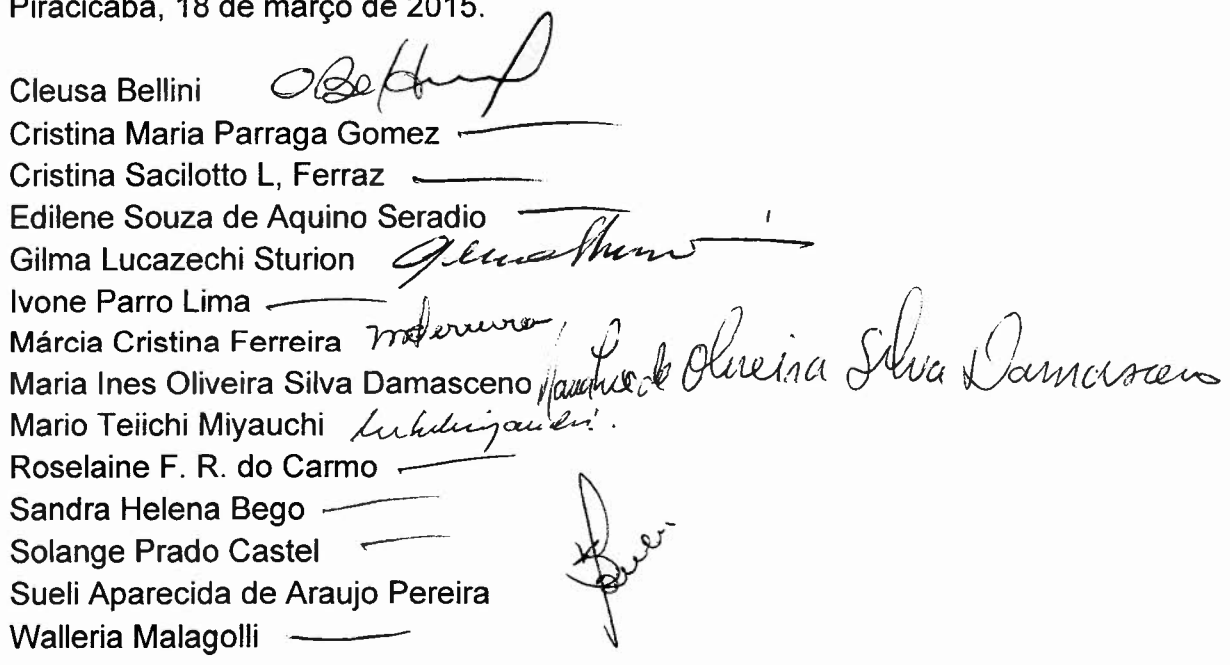 Piracicaba, 18 de março de 2015.
Cleusa Bellini
Cristina Maria Parraga Gomez
Cristina Sacilotto L, Ferraz
Edilene Souza de Aquino Seradio
Gilma Lucazechi Sturion
Ivone Parro Lima
Márcia Cristina Ferreira mcferreira
Maria Ines Oliveira Silva Damasceno de Oliveira Silva Damasceno
Mario Teiichi Miyauchi
Roselaine F. R. do Carmo
Sandra Helena Bego
Solange Prado Castel
Sueli Aparecida de Araujo Pereira Sueli
Walleria Malagolli